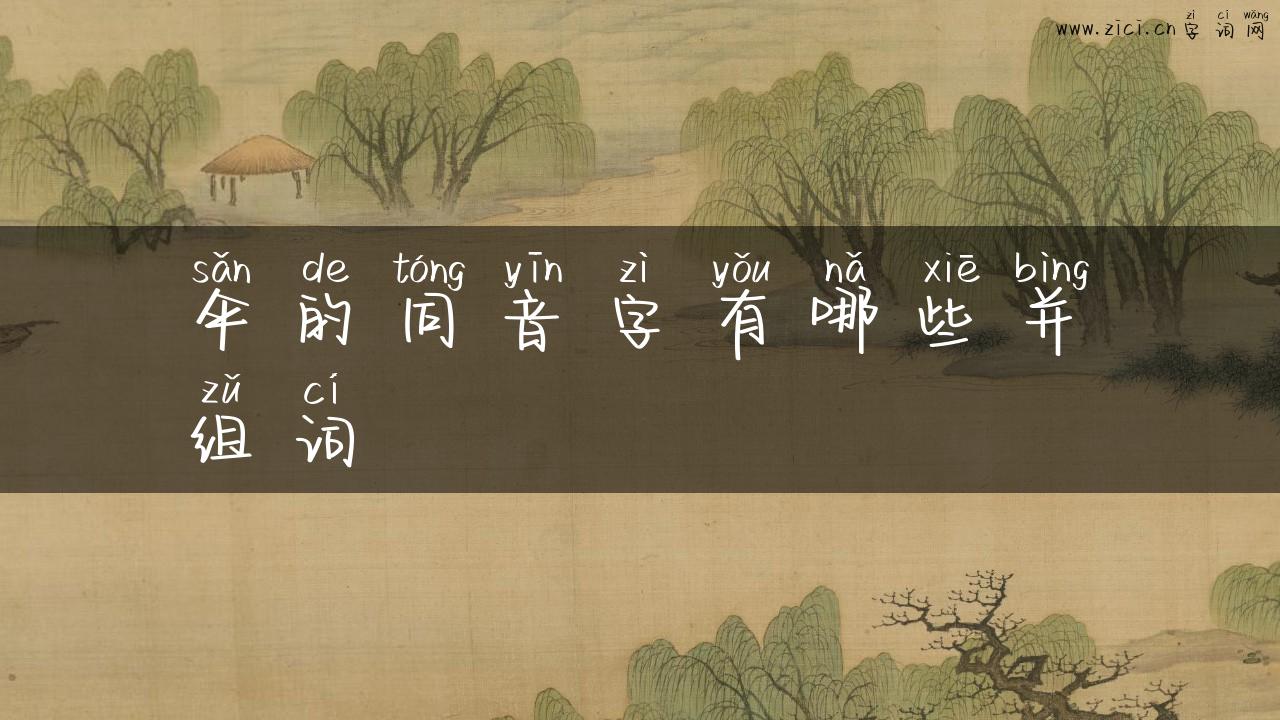 zì cí wǎng
www.zici.cn 字 词 网
sǎn de tóng yīn zì yǒu nǎ xiē bìng
伞 的 同 音 字 有 哪 些 并
zǔ cí
组 词